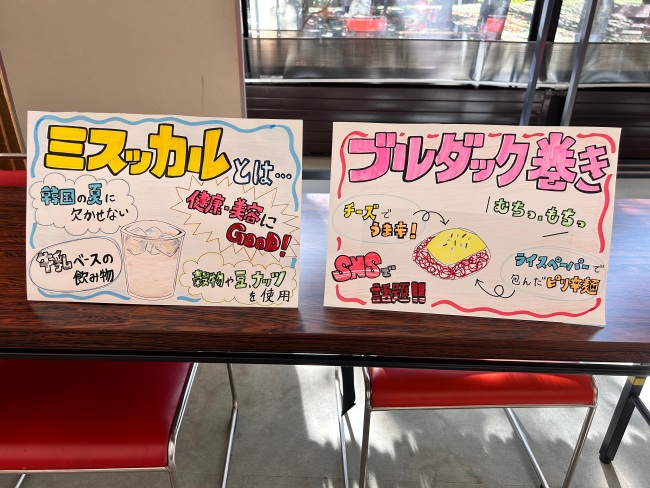 ミスッカルとは…
韓国の夏に
欠かせない
健康・美容に
GOOD!
牛乳ベースの
飲み物
穀物や豆,ナッツ
を使用
ブルダック巻き
チーズで
うま辛!
むちっ,もちっ
SNSで
話題!!
ライスペーパーで
包んだピリ辛麺